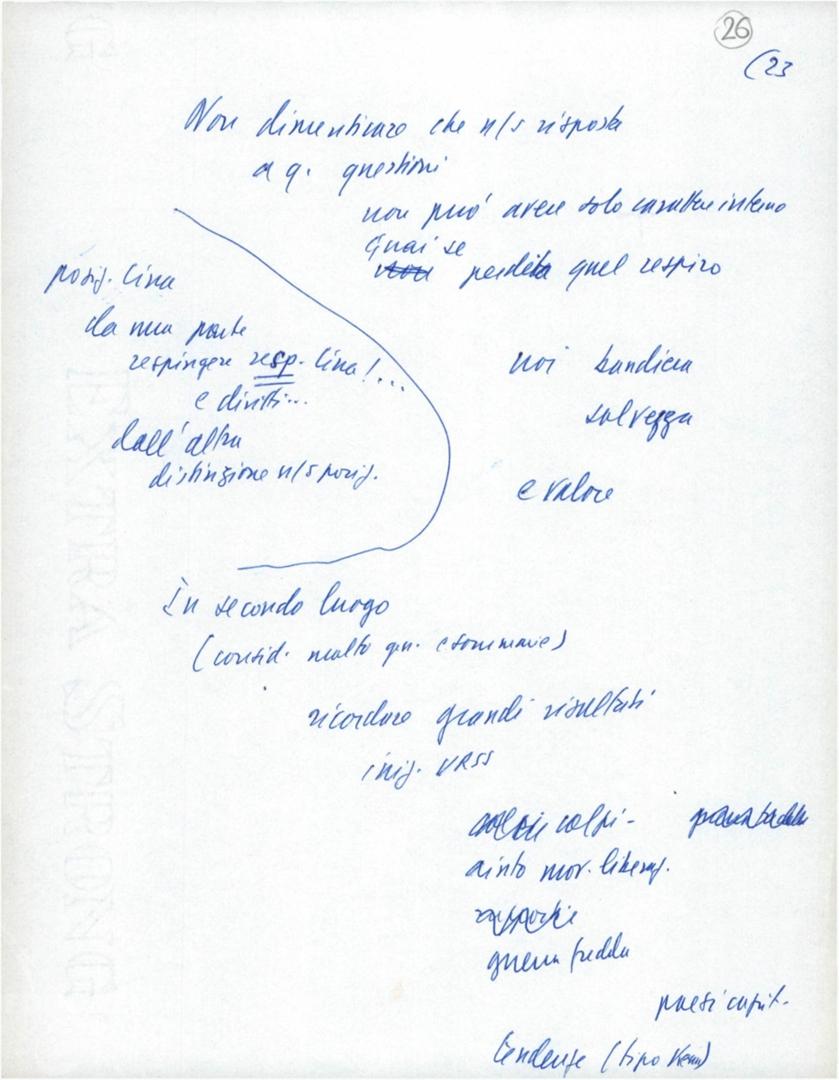 26
(23
Non dimenticare che n/s risposta
a q. questioni
non può avere solo carattere interno
Guai se
non perdita quel respiro
posiz. Cina
da una parte
respingere resp. Cina!...
e diritti...
dall'altra
distinzione n/s posiz.
noi bandiera
salvezza
e valore
In secondo luogo
(consid. molto gen. e sommarie)
ricordare grandi risultati
iniz. URSS
colpi -
aiuto mov. liberaz.
rapporti
guerra fredda
paesi capit.
tendenze (tipo